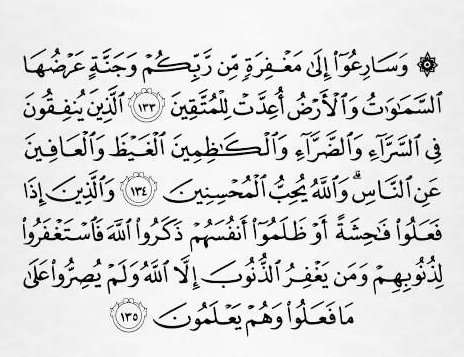 ۞ وَسَارِعُوٓاْ إِلَىٰ مَغۡفِرَةٖ مِّن رَّبِّكُمۡ وَجَنَّةٍ عَرۡضُهَا
ٱلسَّمَٰوَٰتُ وَٱلۡأَرۡضُ أُعِدَّتۡ لِلۡمُتَّقِينَ ١٣٣ ٱلَّذِينَ يُنفِقُونَ
فِي ٱلسَّرَّآءِ وَٱلضَّرَّآءِ وَٱلۡكَٰظِمِينَ ٱلۡغَيۡظَ وَٱلۡعَافِينَ
عَنِ ٱلنَّاسِۗ وَٱللَّهُ يُحِبُّ ٱلۡمُحۡسِنِينَ ١٣٤ وَٱلَّذِينَ إِذَا
فَعَلُواْ فَٰحِشَةً أَوۡ ظَلَمُوٓاْ أَنفُسَهُمۡ ذَكَرُواْ ٱللَّهَ فَٱسۡتَغۡفَرُواْ
لِذُنُوبِهِمۡ وَمَن يَغۡفِرُ ٱلذُّنُوبَ إِلَّا ٱللَّهُ وَلَمۡ يُصِرُّواْ عَلَىٰ
مَا فَعَلُواْ وَهُمۡ يَعۡلَمُونَ ١٣٥